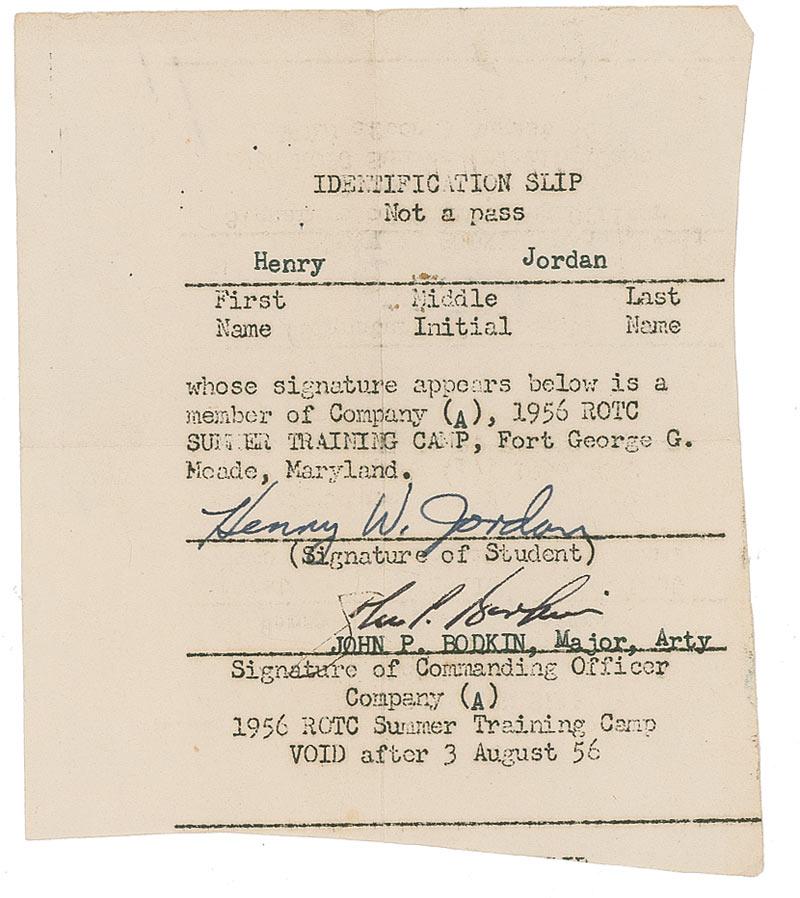 IDENTIFICATION SLIP
Not a pass
Henry Jordan
First Middle Last
Name Initial Name
whose signature appears below is a
member of Company (A), 1956 ROTC
SUMMER TRAINING CAMP, Fort George G.
Meade, Maryland.
Henry W. Jordan
(Signature of Student)
John P. Bodkin
JOHN P. BODKIN, Major, Arty
Signature of Commanding Officer
Company (A)
1956 ROTC Summer Training Camp
VOID after 3 August 56